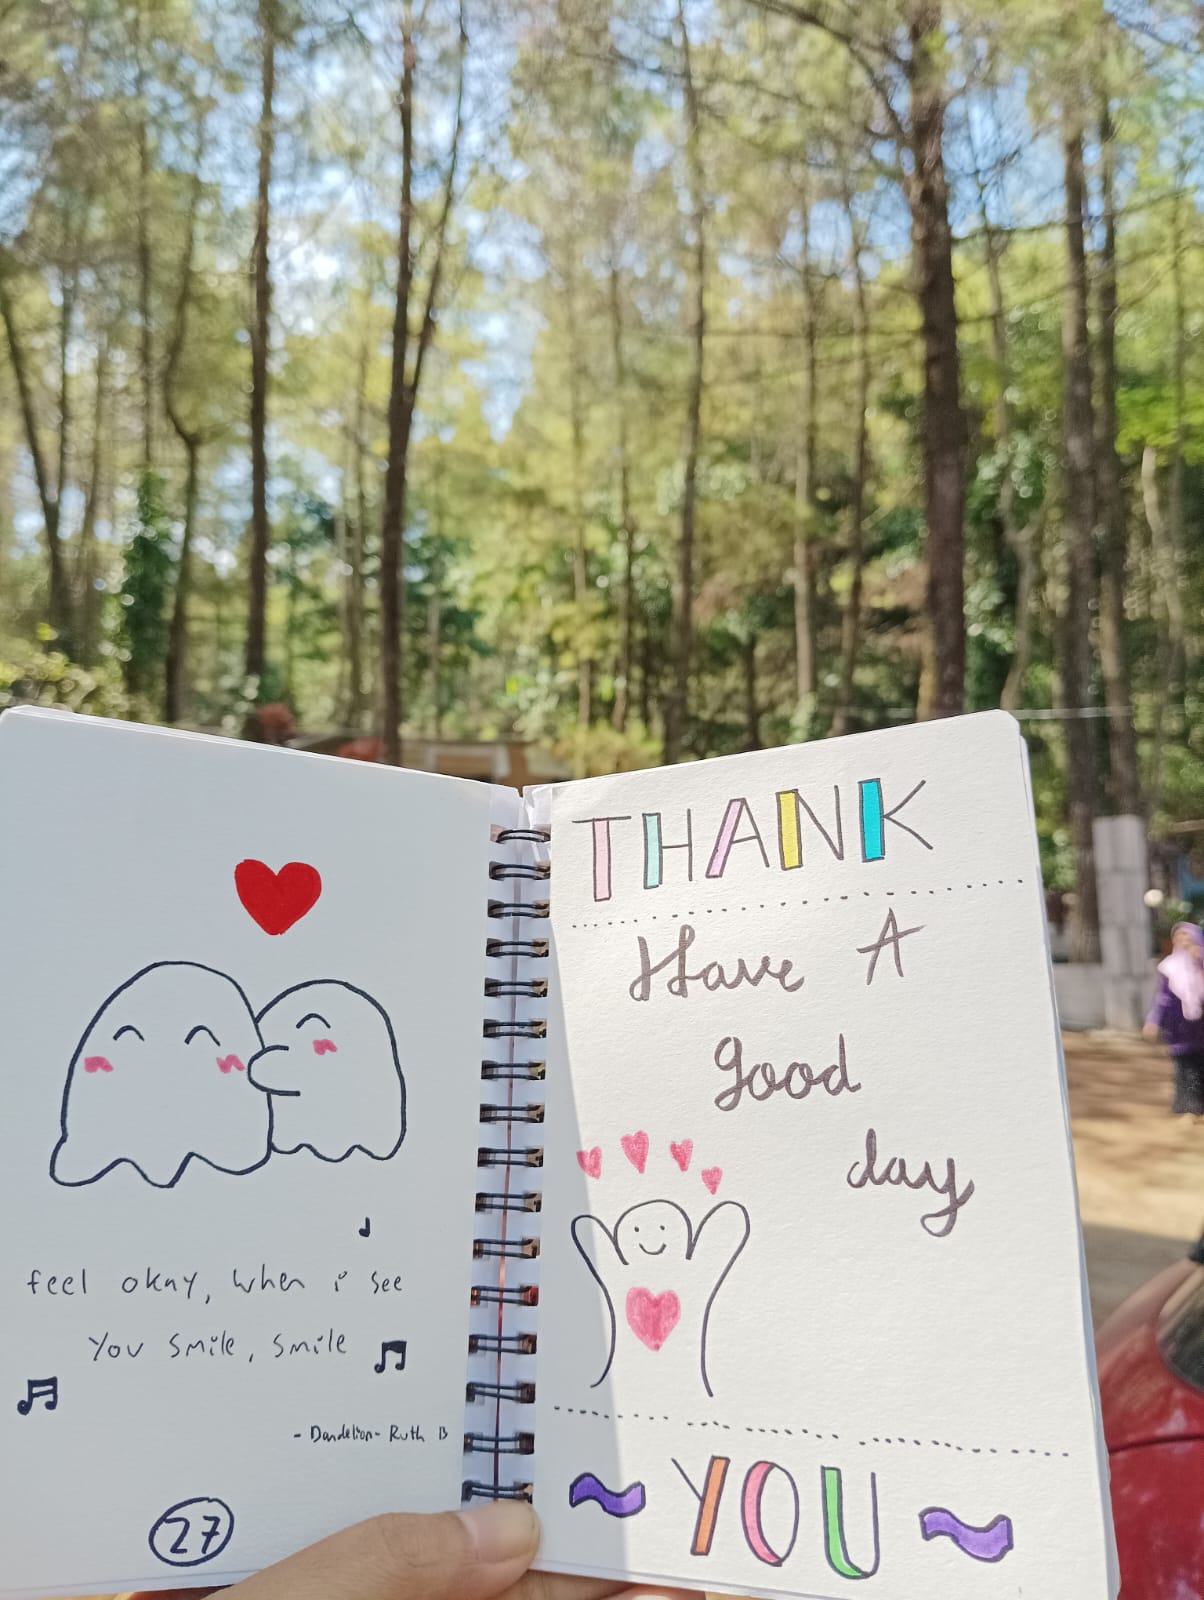 feel okay, when i see
you smile, smile
- Dandelion - Ruth B
27
THANK
Have A
good
day
~ YOU ~